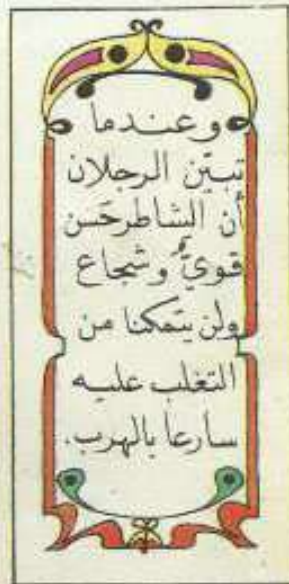 وعندما
تبيّن الرجلان
أن الشاطر حَسن
قويٌّ وشجاع
ولن يتمكنا من
التغلب عليه
سارعا بالهرب.